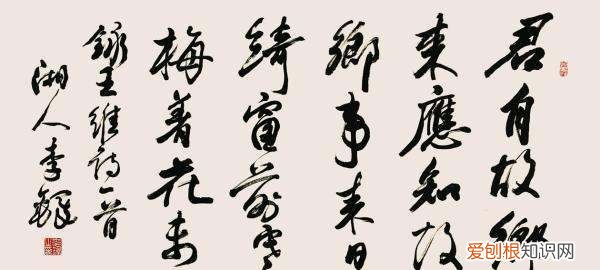 君自故鄉
来應知故
鄉事来日
綺窗前寒
梅着花未
錄王維詩一首
湘人李鐸
爱刨根知识网